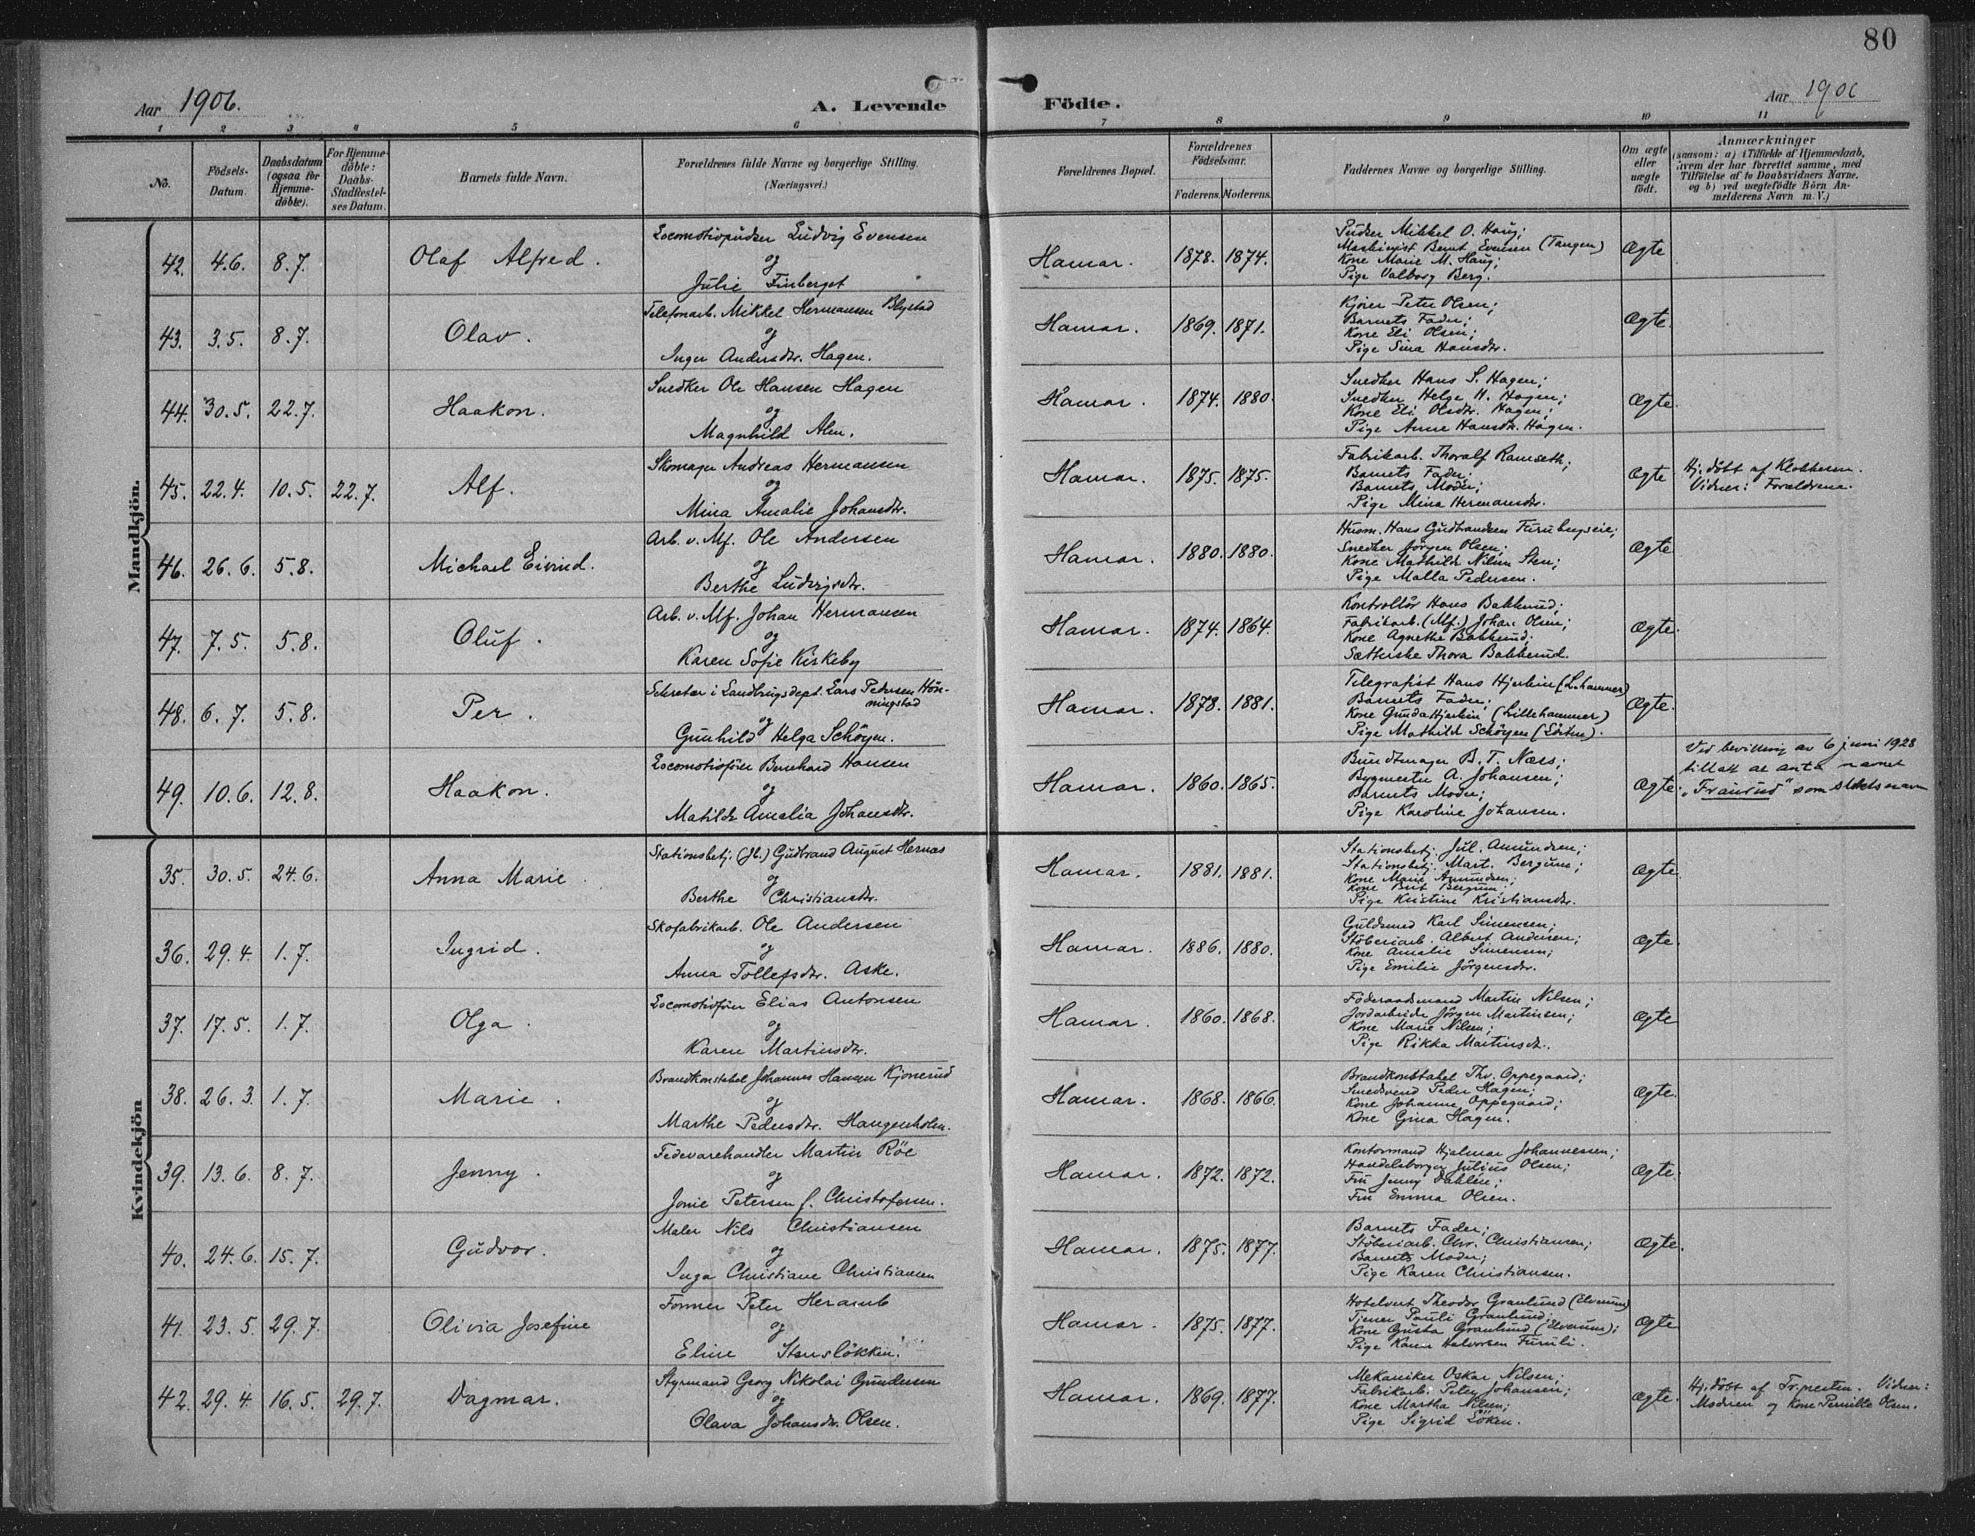 80
Aar 1906.
A. Levende Födte.
Aar 1906
1 2 3 4 5 6 7 8 9 10 11
No.
Födsels-Datum.
Daabsdatum (ogsaa for Hjemme-döbte).
For Hjemme-döbte: Daabs-Stadfæstel-ses Datum.
Barnets fulde Navn.
Forældrenes fulde Navne og borgerlige Stilling.
(Næringsvei.)
Forældrenes Bopæl.
Forældrenes Födselsaar.
Faderens. Moderens.
Faddernes Navne og borgerlige Stilling.
Om ægte eller uægte födt.
Anmærkninger
(saasom: a) i Tilfælde af Hjemmedaab, hvem der har forrettet samme, med Tilföielse af to Daabsvidners Navne, og b) ved uægtefödte Börn Anmelderens Navn m. V.)
Mandkjön.
42. 4.6. 8.7. Olaf Alfred.
Locomotivpudser Ludvig Evensen
og
Julie Finberget
Hamar. 1878. 1874.
Pudser Mikkel O. Haug;
Maskinist Bernt Evensen (Tangen)
Kone Marie M. Haug;
Pige Valborg Berg.
Ægte
43. 3.5. 8.7. Olav.
Telefonarb. Mikkel Hermansen Blystad
og
Inger Andersdtr. Hagen.
Hamar. 1869. 1871.
Kjörer Peter Olsen;
Barnets Fader;
Kone Eli Olsen;
Pige Sina Hansdtr.
Ægte.
44. 30.5. 22.7. Haakon.
Snedker Ole Hansen Hagen
og
Magnhild Alm.
Hamar. 1874. 1880.
Snedker Hans S. Hagen;
Snedker Helge H. Hagen;
Kone Eli Olsdtr. Hagen;
Pige Anne Hansdtr. Hagen.
Ægte.
45. 22.4. 10.5. 22.7. Alf.
Skomager Andreas Hermansen
og
Mina Amalie Johansdtr.
Hamar. 1875. 1875.
Fabrikarb. Thoralf Ramseth;
Barnets Fader;
Barnets Moder;
Pige Mina Hermansdtr.
Ægte
Hj. döbt af Klokkeren.
Vidner: Forældrene.
46. 26.6. 5.8. Michael Eivind.
Arb. v. Mf. Ole Andersen
og
Berthe Ludvigsdtr.
Hamar. 1880. 1880.
Husm. Hans Gudbrandsen Furubergseie;
Snedker Jörgen Olsen;
Kone Mathilde Nilsen Sten;
Pige Malla Pedersen.
Ægte
47. 7.5. 5.8. Oluf.
Arb. v. Mf. Johan Hermansen
og
Karen Sofie Kirkeby
Hamar. 1874. 1864.
Kontrollör Hans Bakkerud;
Fabrikarb. (Mf.) Johan Olsen;
Kone Agnethe Bakkerud;
Sætterske Thora Bakkerud.
Ægte.
48. 6.7. 5.8. Per.
Sekretær i Landbrugsdept. Lars Pedersen Hön-
ningstad
og
Gunhild Helga Schöyen.
Hamar. 1878. 1881.
Telegrafist Hans Hjerkin (L.hammer)
Barnets Fader;
Kone Gunda Hjerkin (Lillehammer)
Pige Mathild Schöyen (Löiten).
Ægte.
49. 10.6. 12.8. Haakon.
Locomotivförer Bernhard Hansen
og
Matilde Amalia Johansdtr.
Hamar. 1860. 1865.
Bundtmager B. T. Næss;
Bygmester A. Johansen;
Barnets Moder;
Pige Karoline Johansen.
Ægte.
Ved bevilling av 6 juni 1928
tillatt at anta navnet
"Fransrud" som slektsnavn
Kvindekjön
35. 30.5. 24.6. Anna Marie.
Stationsbetj. (Jb.) Gudbrand August Hernæs
og
Berthe Christiansdtr.
Hamar. 1881. 1881.
Stationsbetj. Jul. Amundsen;
Stationsbetj. Mart. Bergum;
Kone Marie Amundsen;
Kone Brit Bergum;
Pige Kristine Kristiansdtr.
Ægte
36. 29.4. 1.7. Ingrid.
Skofabrikarb. Ole Andersen
og
Anna Tollefsdtr. Aske.
Hamar. 1886. 1880.
Guldsmed Karl Simensen;
Stöberiarb. Albert Andersen;
Kone Amalie Simensen;
Pige Emilie Jörgensdtr.
Ægte.
37. 17.5. 1.7. Olga.
Locomotivförer Elias Antonsen
og
Karen Martinsdtr.
Hamar. 1860. 1868.
Föderaadsmand Martin Nilsen;
Jordarbeider Jörgen Martinsen;
Kone Marie Nilsen;
Pige Rikka Martinsdt.
Ægte
38. 26.3. 1.7. Marie.
Brandkonstabel Johannes Hansen Kjonerud
og
Marthe Pedersdtr. Haugenholen.
Hamar. 1868. 1866.
Brandkonstabel Thv. Oppegaard;
Smedsvend Peder Hagen;
Kone Johanne Oppegaard;
Kone Gina Hagen.
Ægte.
39. 13.6. 8.7. Jenny.
Fedevarehandler Martin Röe
og
Jonie Petersen f. Christofersen.
Hamar. 1872. 1872.
Kontormand Hjalmar Johannessen;
Handelsborger Julius Olsen;
Fru Jenny Dahlen;
Fru Emma Olsen.
Ægte.
40. 24.6. 15.7. Gudvor.
Maler Nils Christiansen
og
Inga Christiane Christiansen
Hamar. 1875. 1877.
Barnets Fader;
Stöberiarb. Chr. Christiansen;
Barnets Moder;
Pige Karen Christiansen.
Ægte.
41. 23.5. 29.7. Olivia Josefine
Former Peter Heramb
og
Eline Stenslökken.
Hamar. 1875. 1877.
Hotelvert Theodor Granlund (Elverum)
Tjener Pauli Granlund;
Kone Gusta Granlund (Elverum);
Pige Karen Halvorsen Furuli.
Ægte
42. 29.4. 16.5. 29.7. Dagmar.
Styrmand Georg Nikolai Gundersen
og
Olava Johansdtr. Olsen.
Hamar. 1869. 1877.
Mekaniker Oskar Nilsen;
Fabrikarb. Peter Johansen;
Kone Martha Nilsen;
Pige Sigrid Löken.
Ægte.
Hj. döbt af Sognepresten. Vidner:
Moderen og Kone Pernille Olsen.